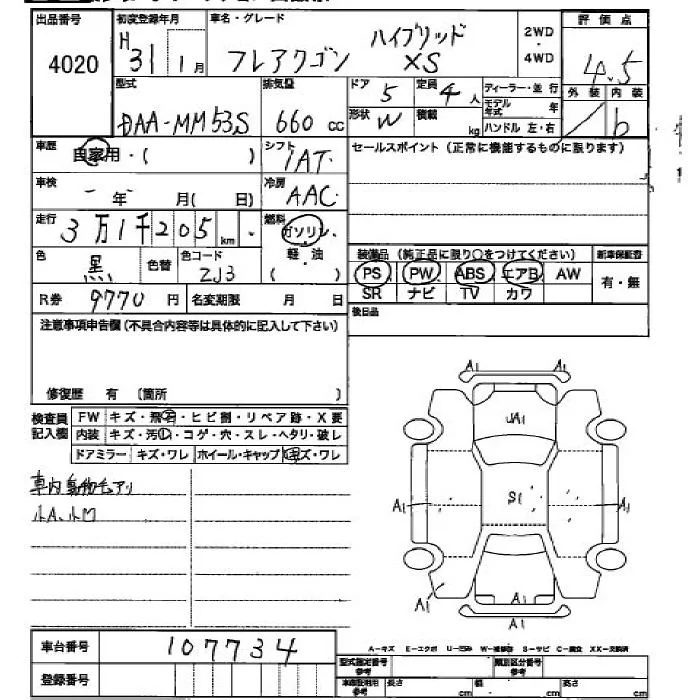 出品番号 初度登録年月 車名・グレード 2WD・4WD 評価点
4020 H31 1月 フレアワゴン ハイブリッド XS 4.5
型式 排気量 ドア 5 定員 4人 ディーラー・並行 外装 内装
DAA-MM53S 660cc 形状 W 積載 kg モデル年式 年 ハンドル 左・右 b
車歴 自家用・( ) シフト IAT セールスポイント(正常に機能するものに限ります)
車検 - 年 月(日) 冷房 AAC
走行 3万1千205km 燃料 ガソリン・軽・油 ( )
色 黒 色替 色コード ZJ3
装備品(純正品に限り○をつけてください) 新車保証書
PS PW ABS エアB AW 有・無
SR ナビ TV カワ
R券 9770円 名変期限 月 日
後日品
注意事項申告欄(不具合内容等は具体的に記入して下さい)
修復歴 有 (箇所 )
検査員記入欄 FW キズ・飛石・ヒビ割・リペア跡・X要
内装 キズ・汚レ・コゲ・穴・スレ・ヘタリ・破レ
ドアミラー キズ・ワレ ホイール・キャップ キズ・ワレ
車内動物毛アリ
小A、小凹
A1 A1
UA1
A1 S1 A1
A1 A1
A1
車台番号 107734
登録番号
A-キズ E-エクボ U-凹み W-補修跡 S-サビ C-腐食 XX-交換済
型式指定番号 参考 類別区分番号 参考
車庫証明用 参考 長さ cm 幅 cm 高さ cm